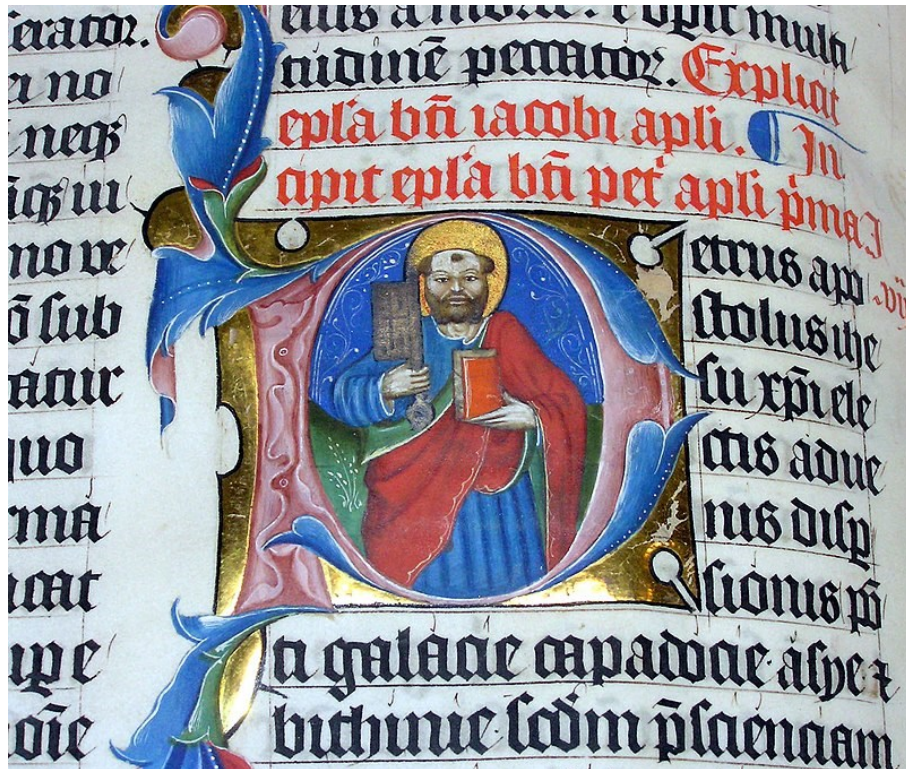 no
neqꝫ
no ve
sub
quo
rma
oīe
eius a morte. ⁊ opit multi
tudinē peccatoꝝ. Explicit
epl̄a bt̄i iacobi apl̄i. In
cipit epl̄a bt̄i pet' apl̄i p̄ma I
etrus apo
stolus ihe
su xp̄i ele
ctis adue
nis disp
sionis pō
ti galacie capadocie· asye ⁊
bithinie· scd̄m p̄scienciam